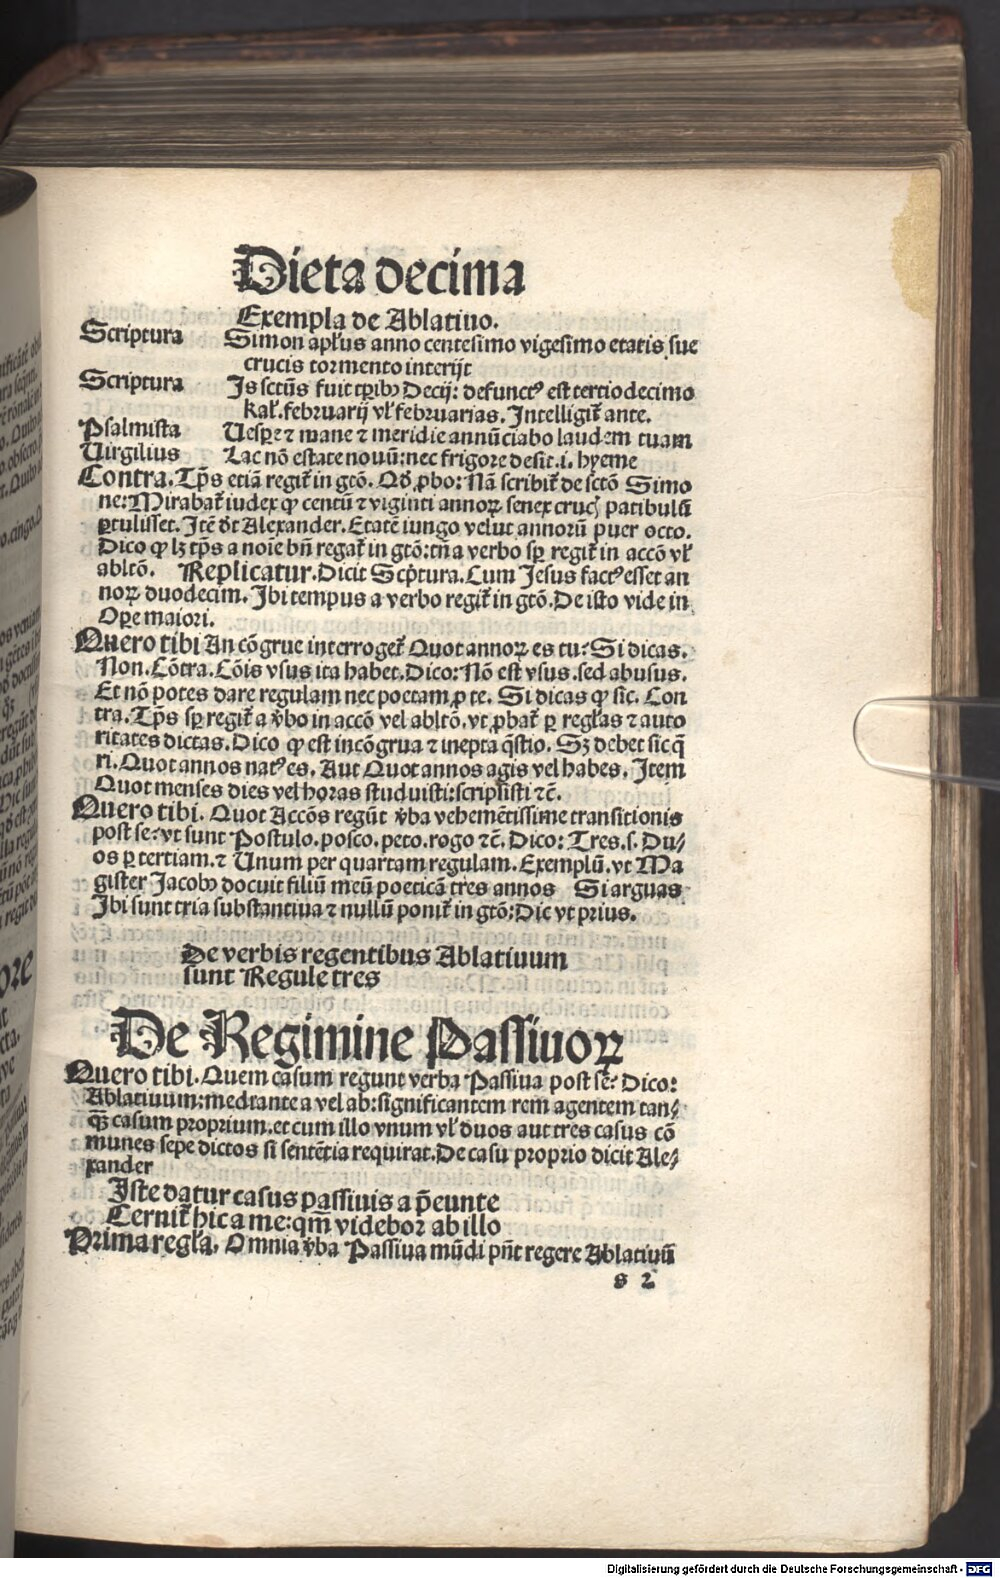 Dieta decima
Exempla de Ablatiuo.
Scriptura Simon apl'us anno centesimo vigesimo etatis sue
crucis tormento interijt
Scriptura Is sctūs fuit tꝑibꝰ Decij: defunctꝰ est tertiodecimo
kal'. februarij vl' februarias. Intelligit̄ ante.
Psalmista Uesꝑe ⁊ mane ⁊ meridie annūciabo laudem tuam
Uirgilius Lac nō estate nouū: nec frigore desit .i. hyeme
Contra. Tp̄s etiā regit̄ in gtō. Qḋ ꝓbo: Nā scribit̄ de sctō Simo
ne: Mirabat̄ iudex ꝙ centū ⁊ viginti annoꝝ senex crucꝭ patibulū
ꝑtulisset. Itē dt Alexander. Etatē iungo velut annorū puer octo.
Dico ꝙ lꝫ tp̄s a noīe bn̄ regat̄ in gtō: tn̄ a verbo sꝑ regit̄ in accō vl'
abltō. Replicatur. Dicit Scp̄tura. Cum Jesus factꝰ esset an
noꝝ duodecim. Ibi tempus a verbo regit̄ in gtō. De isto vide in
Oꝑe maiori.
Quero tibi An cōgrue interroget̄ Quot annoꝝ es tu? Si dicas.
Non. Cōtra. Cōis vsus ita habet. Dico: Nō est vsus. sed abusus.
Et nō potes dare regulam nec poetam ꝓ te. Si dicas ꝙ sic. Con
tra. Tp̄s sꝑ regit̄ a v̄bo in accō vel abltō. vt ꝓbat̄ ꝑ regl'as ⁊ aucto
ritates dictas. Dico ꝙ est incōgrua ⁊ inepta q̄stio. Sꝫ debet sic q̄
ri. Quot annos natꝰ es. Aut Quot annos agis vel habes. Item
Quot menses dies vel horas studuisti: scripsisti ⁊c̄.
Quero tibi. Quot Accōs regūt v̄ba vehemētissime transitionis
post se: vt sunt Postulo. posco. peto. rogo ⁊c̄. Dico: Tres. s. Du⸗
os ꝑ tertiam. ⁊ Unum per quartam regulam. Exemplū. vt Ma
gister Jacobꝰ docuit filiū meū poeticā tres annos Si arguas
Ibi sunt tria substantiua ⁊ nullū ponit̄ in gtō: Dic vt prius.
De verbis regentibus Ablatiuum
sunt Regule tres
De Regimine Passiuoꝝ
Quero tibi. Quem casum regunt verba Passiua post se? Dico:
Ablatiuum: mediante a vel ab: significantem rem agentem tan⸗
qꝫ casum proprium. et cum illo vnum vl' duos aut tres casus cō
munes sepe dictos si sentētia requirat. De casu proprio dicit Ale⸗
xander
Iste datur casus passiuis a p̄eunte
Cernit̄ hic a me: qm̄ videbor ab illo
Prima regl'a. Omnia v̄ba Passiua mūdi pn̄t regere Ablatiuū
s 2
Digitalisierung gefördert durch die Deutsche Forschungsgemeinschaft - DFG